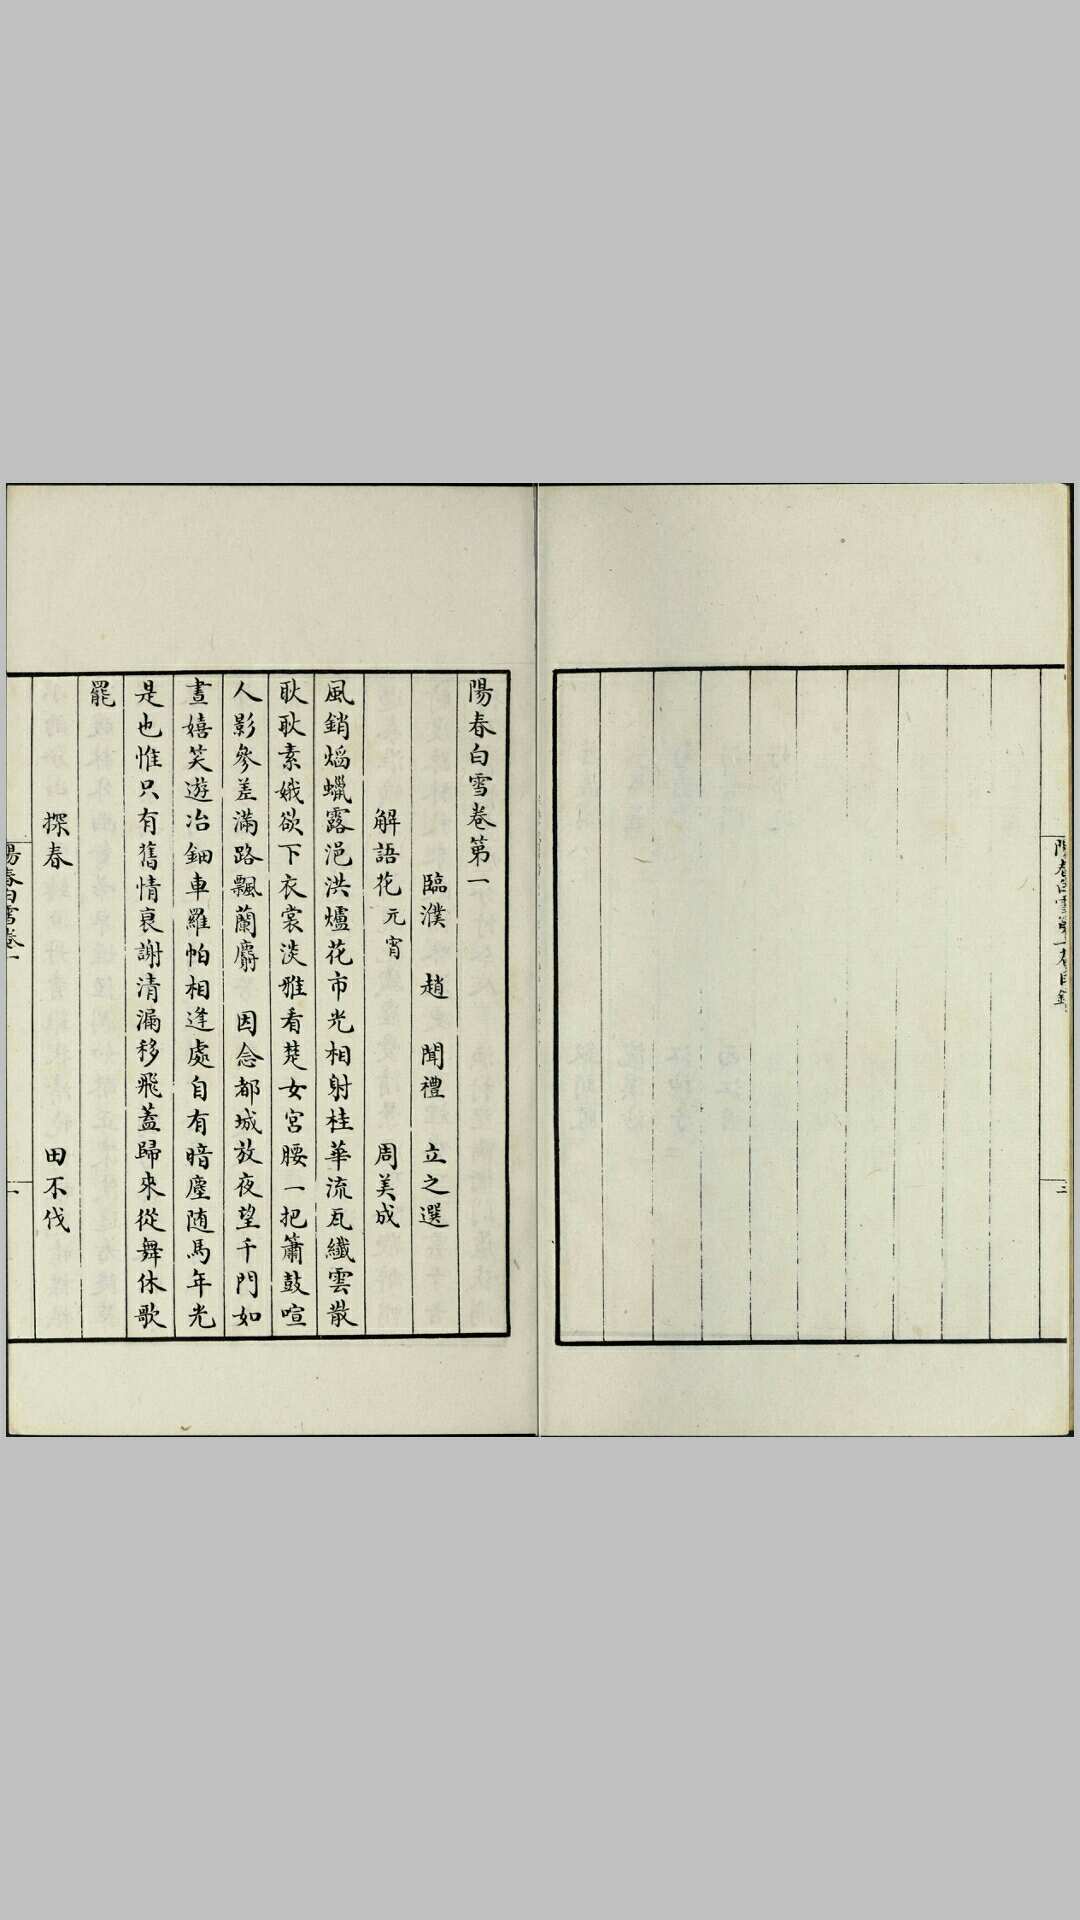 陽春白雪卷第一
臨濮 趙 聞禮 立之選
解語花 元宵 周美成
風銷熖蠟露浥洪爐花市光相射桂華流瓦纖雲散
耿耿素娥欲下衣裳淡雅看楚女宮腰一把簫鼓喧
人影參差滿路飄蘭麝 因念都城放夜望千門如
晝嬉笑遊冶鈿車羅帕相逢處自有暗塵随馬年光
是也惟只有舊情衰謝清漏移飛蓋歸來從舞休歌
罷
探春 田不伐
陽春白雪卷一